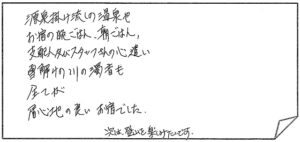 源泉掛け流しの温泉も
お宿の晩ごはん、朝ごはん、
支配人及びスタッフさんの心遣い
雪解けの川の濁音も
全てが
居心地の良いお宿でした。
次は、登山も楽しみたいです。